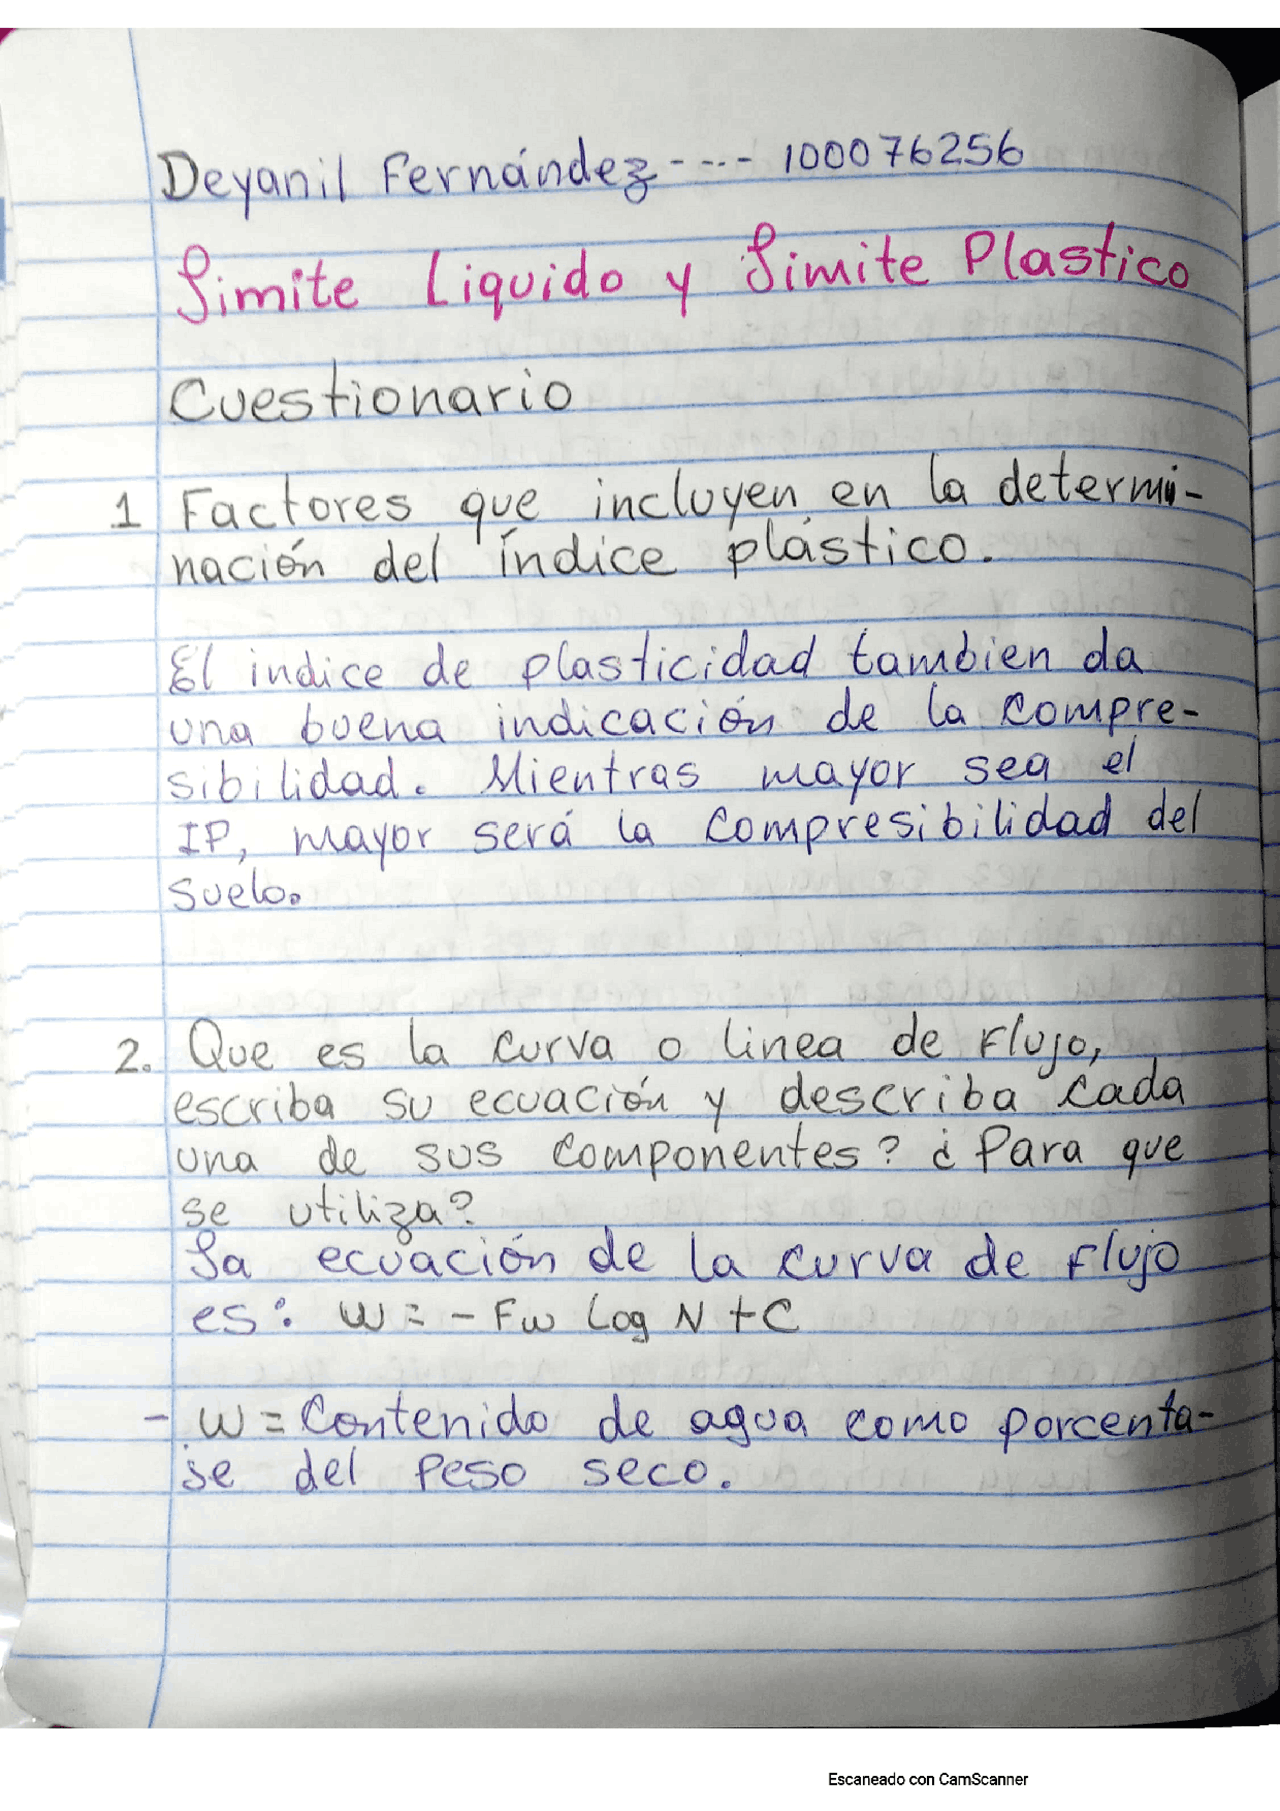 Deyanil Fernández ---- 100076256
Limite Liquido y Limite Plastico
Cuestionario
1 Factores que incluyen en la determi-
nación del índice plástico.
El indice de plasticidad tambien da
una buena indicación de la compre-
sibilidad. Mientras mayor sea el
IP, mayor será la compresibilidad del
suelo.
2. Que es la curva o linea de Flujo,
escriba su ecuación y describa cada
una de sus componentes? ¿Para que
se utiliza?
La ecuación de la curva de Flujo
es: W = - Fw Log N + C
- W = Contenido de agua como porcenta-
je del Peso seco.
Escaneado con CamScanner